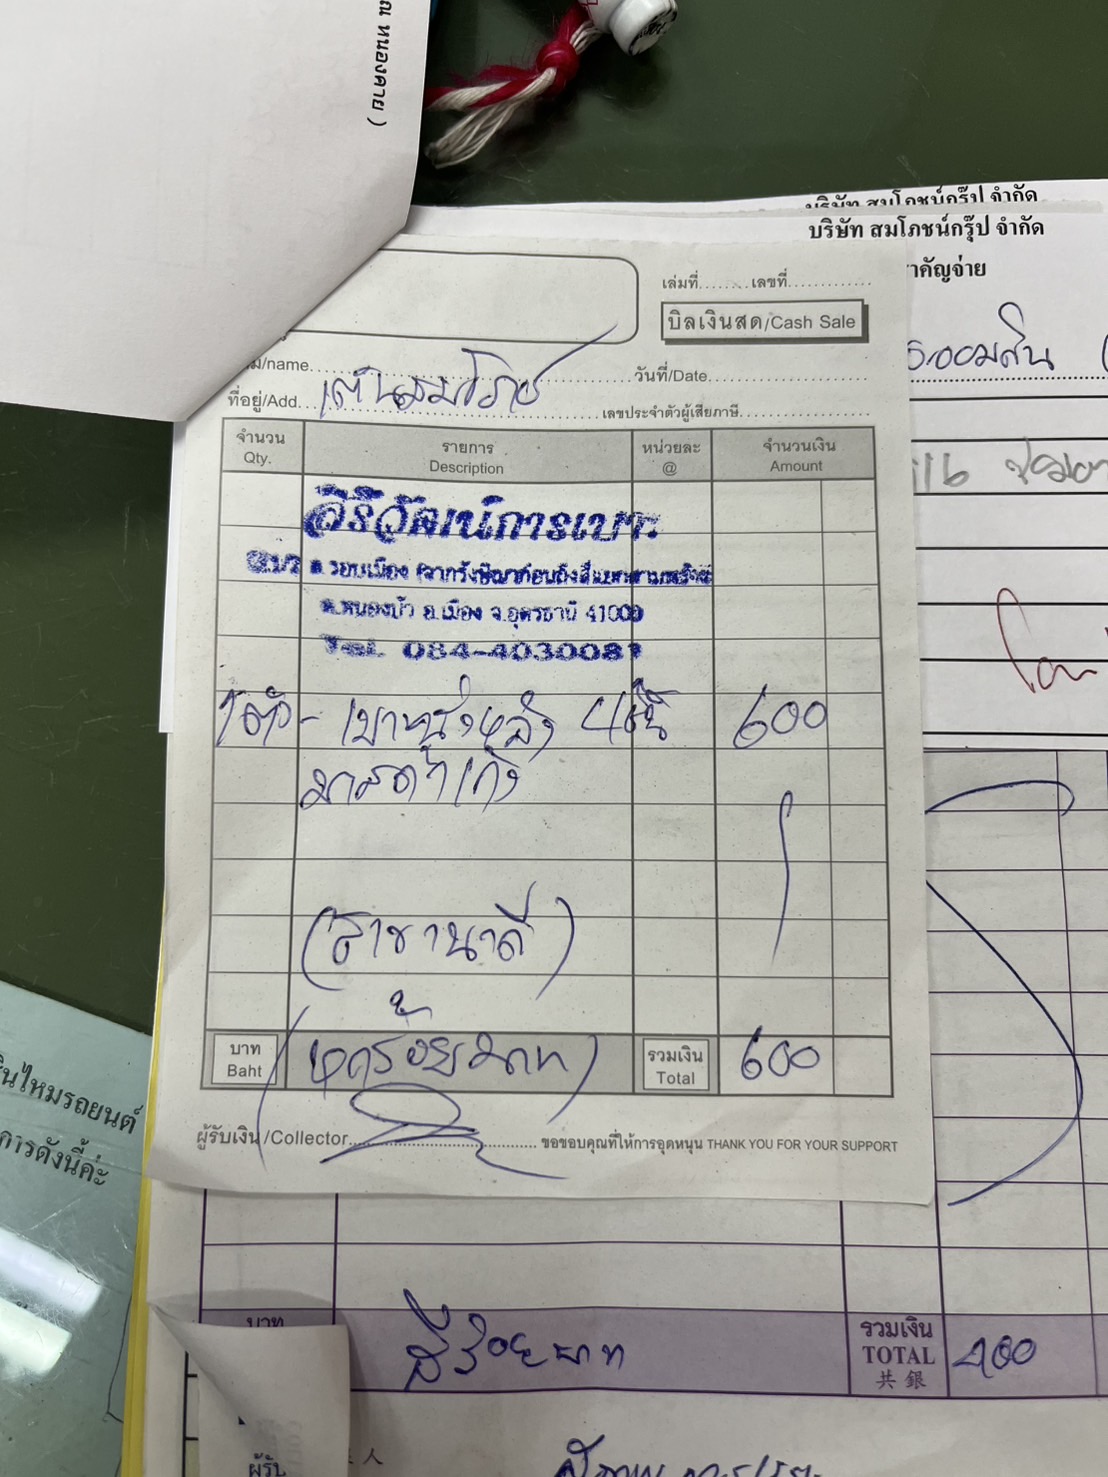 ณ หนองคาย )
บริษัท สมโภชน์กรุ๊ป จำกัด
บริษัท สมโภชน์กรุ๊ป จำกัด
คัญจ่าย
เล่มที่........เลขที่.............
บิลเงินสด/Cash Sale
ออมสิน
/name
วันที่/Date
ที่อยู่/Add.
เลขประจำตัวผู้เสียภาษี
จำนวน รายการ หน่วยละ จำนวนเงิน
Qty. Description @ Amount
สิริวัฒน์การเบาะ
ถ.รอบเมือง
ต.หนองบัว อ.เมือง จ.อุดรธานี 41000
Tel. 084-4030081
1ตัว - เบาะนั่งหลัง 600
มาสด้าเก๋ง
(สาขานาดี)
บาท (หกร้อยบาท) รวมเงิน 600
Baht Total
ผู้รับเงิน/Collector ขอขอบคุณที่ให้การอุดหนุน THANK YOU FOR YOUR SUPPORT
ไหมรถยนต์
การดังนี้ค่ะ
บาท สี่ร้อยบาท รวมเงิน 400
TOTAL
共 銀
ผู้รับ 人